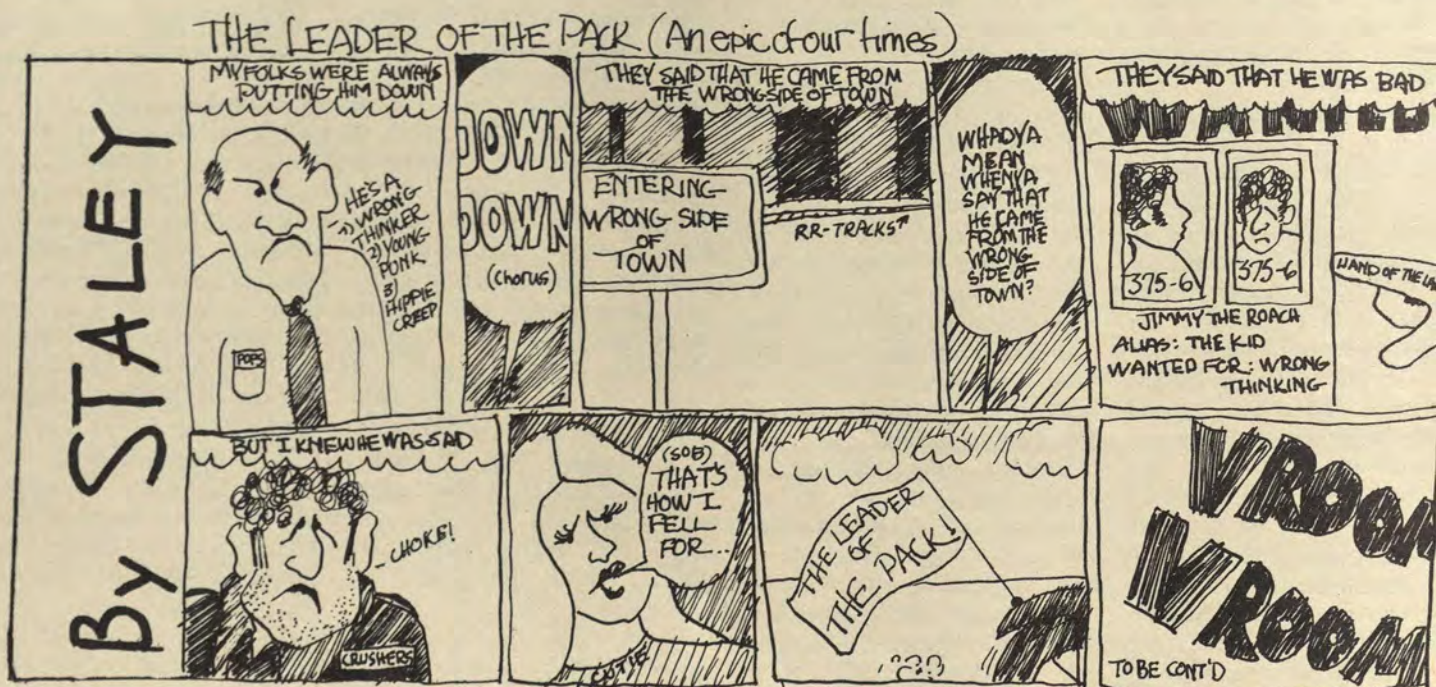 THE LEADER OF THE PACK (An epic of our times)
By STALEY
MY FOLKS WERE ALWAYS
PUTTING HIM DOWN
HE'S A
1) WRONG
THINKER
2) YOUNG
PUNK
3)
HIPPIE
CREEP
POPS
DOWN
DOWN
(chorus)
THEY SAID THAT HE CAME FROM
THE WRONG SIDE OF TOWN
ENTERING
WRONG SIDE
OF
TOWN
RR-TRACKS
WHADYA
MEAN
WHENYA
SAY THAT
HE CAME
FROM THE
WRONG
SIDE OF
TOWN?
THEY SAID THAT HE WAS BAD
WANTED
375-6
375-6
HAND OF THE
JIMMY THE ROACH
ALIAS: THE KID
WANTED FOR: WRONG
THINKING
BUT I KNEW HE WAS SAD
CHOKE!
CRUSHERS
(SOB)
THAT'S
HOW I
FELL
FOR...
CUTIE
THE LEADER
OF
THE PACK!
VROOM
VROOM
TO BE CONT'D